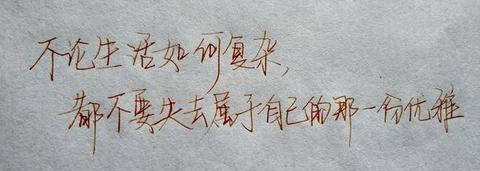 不论生活如何复杂,
都不要失去属于自己的那一份优雅